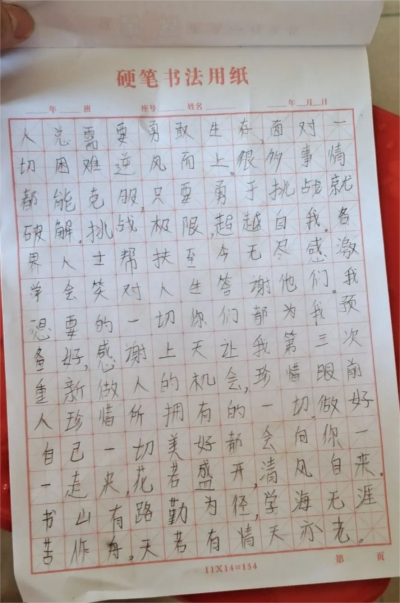 硬笔书法用纸
年 班 座号 姓名 年 月 日
人总需要勇敢生存,面对一
切困难逆风而上.很多事情
都能克服,只要勇于挑战就
破解.挑战极限,超越自我.各
界人士帮扶至今无尽感激
学会笑对人生答谢他们.我
想要的一切你们都为我预
备好,感谢上天让我第三次
重新做人的机会,珍惜眼前
人珍惜所拥有的一切.做好
自己一切美好都会向你一
一走来,花若盛开,清风自来.
书山有路勤为径,学海无涯
苦作舟.天若有情天亦老.
11X14=154
第 页